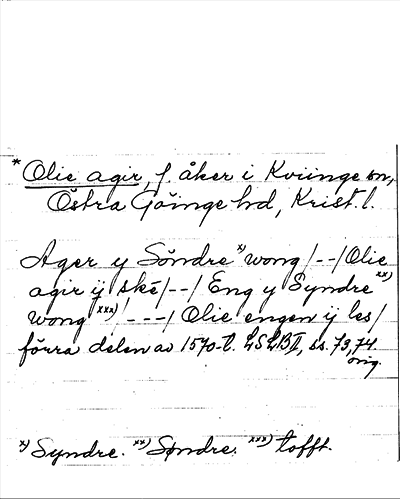 * Olie agir, f. åker i Kviinge sn,
Östra Göinge hd, Krist. l.
Ager y Söndre x) wong /--/ Olie
agir ij ske/--/ Eng y Syndre xx)
wong xxx) /---/ Olie engen ij les/
förra delen av 1570-t. LSLB II, ss. 73, 74
orig.
x) Syndre. xx) Søndre. xxx) tofft.